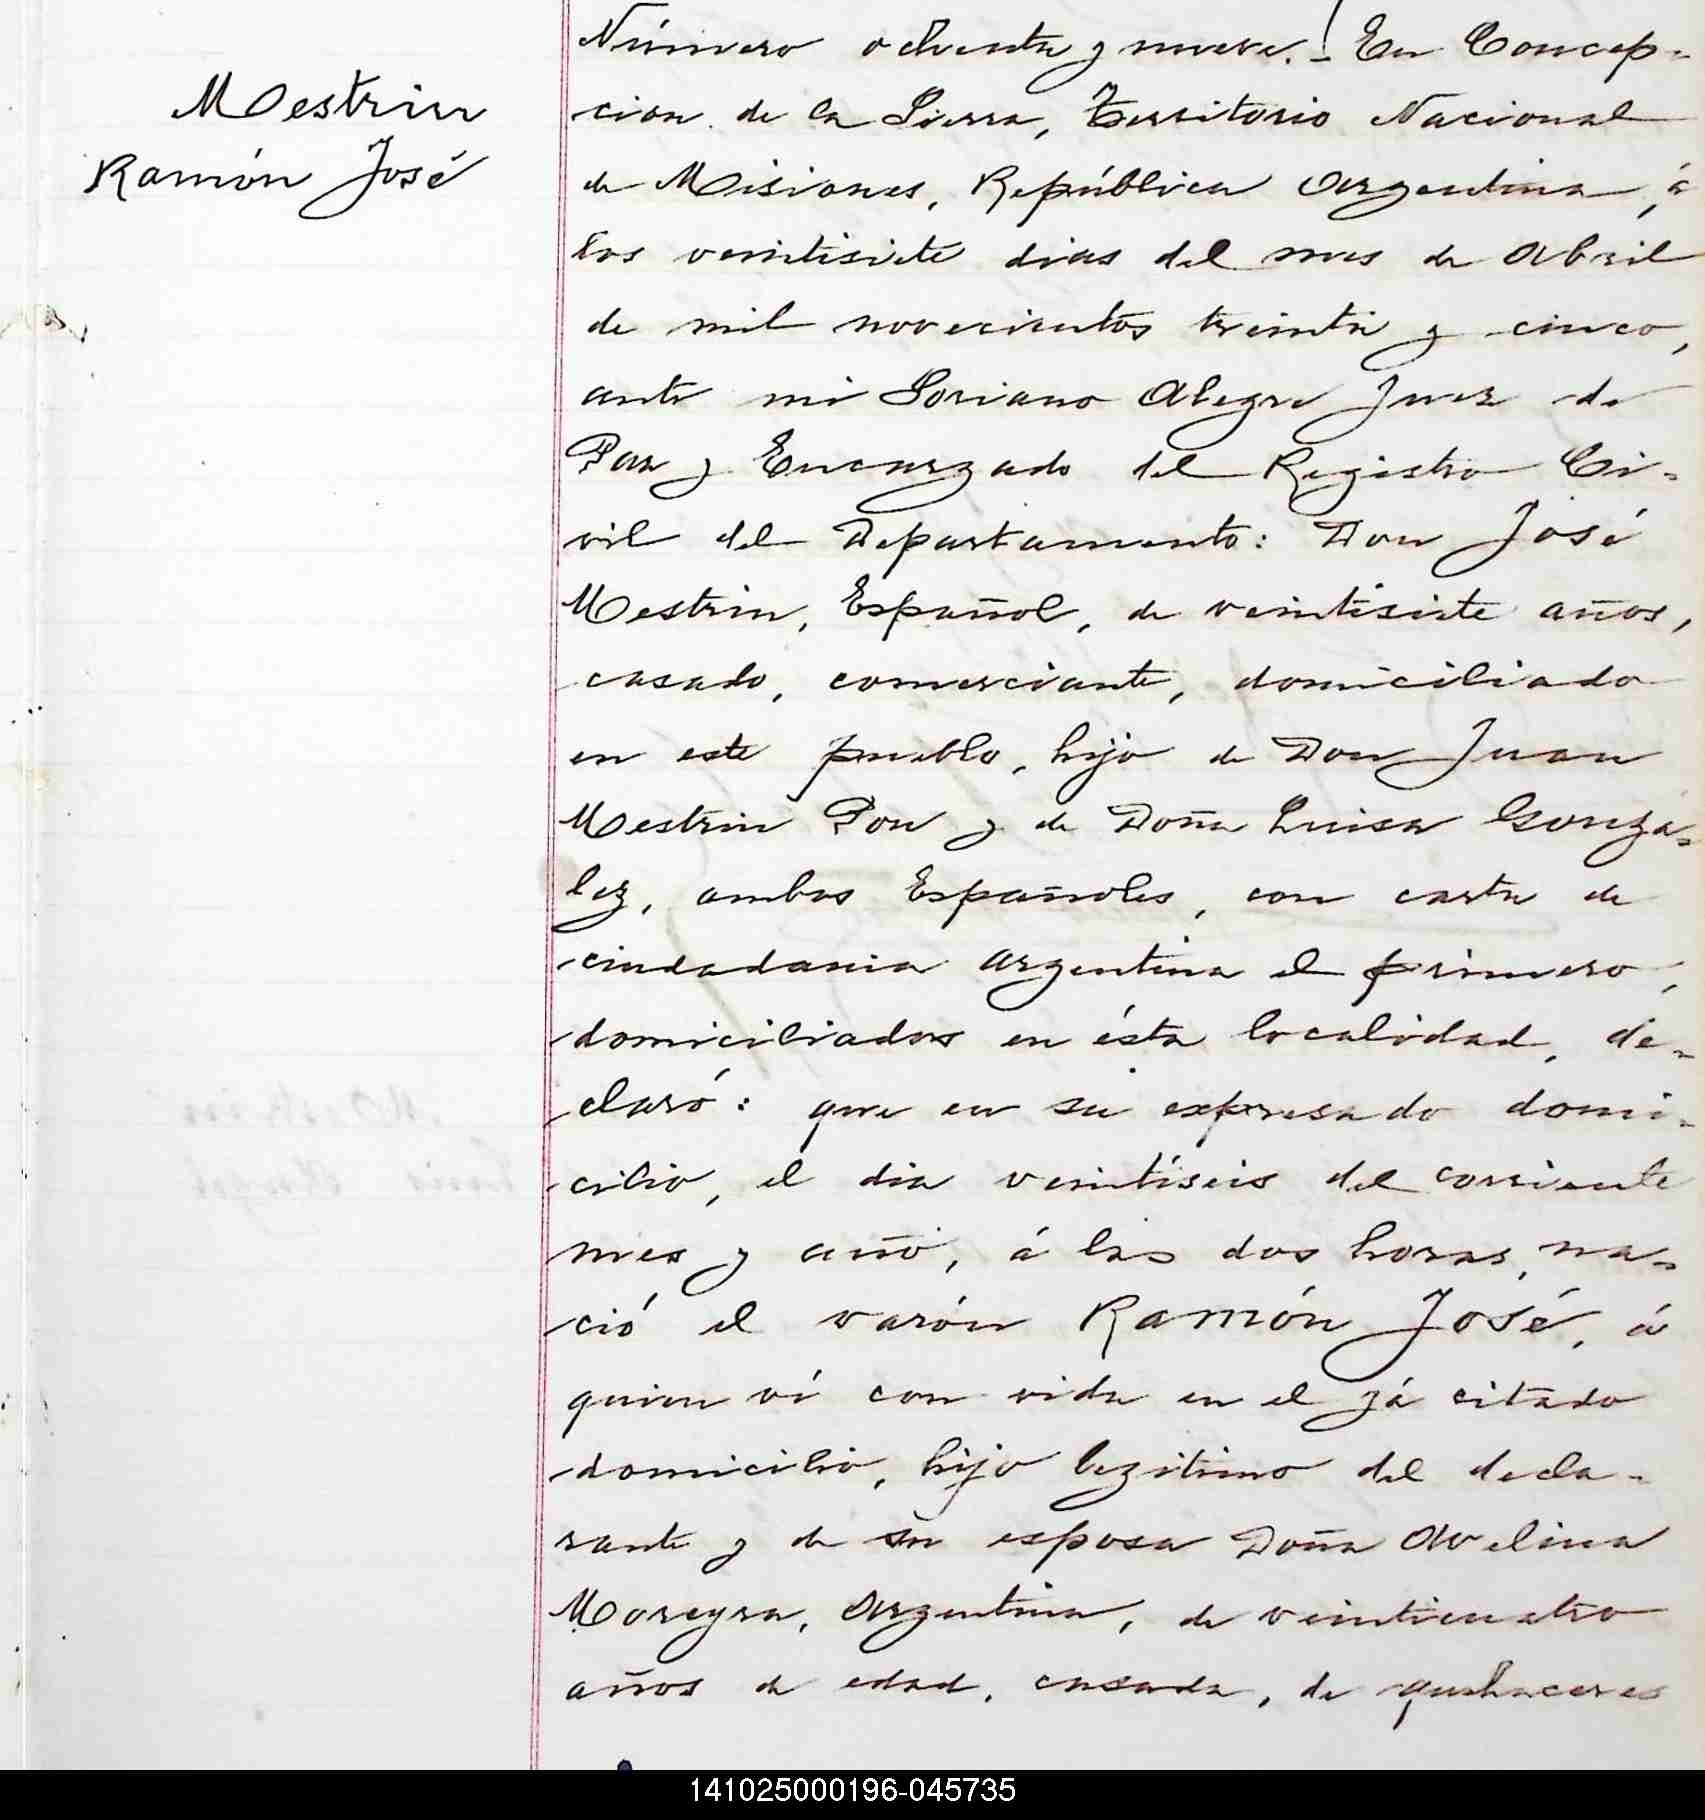 Mestrin
Ramón José
Número ochenta y nueve. En Concep-
cion de la Sierra, Territorio Nacional
de Misiones, República Argentina, á
los veintisiete dias del mes de Abril
de mil novecientos treinta y cinco,
ante mi Soriano Alegre Juez de
Paz y Encargado del Registro Ci-
vil del Departamento: Don José
Mestrin, Español, de veintisiete años,
casado, comerciante, domiciliado
en este pueblo, hijo de Don Juan
Mestrin Pou y de Doña Luisa Gonza-
lez, ambos Españoles, con carta de
ciudadania argentina el primero,
domiciliados en ésta localidad, de-
claró: que en su expresado domi-
cilio, el dia veintiseis del corriente
mes y año, á las dos horas, na-
ció el varón Ramón José, á
quien ví con vida en el yá citado
domicilio, hijo legitimo del decla-
rante y de su esposa Doña Avelina
Moreyra, Argentina, de veinticuatro
años de edad, casada, de quehaceres
141025000196-045735